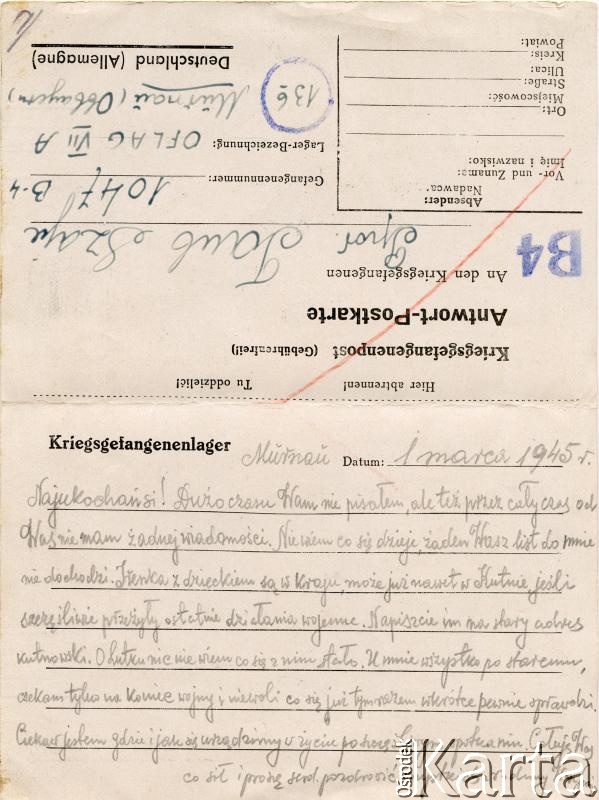 Kriegsgefangenenlager Mürnau Datum: 1 marca 1945 r.
Najukochańsi! Dużo czasu Wam nie pisałem, ale też przez cały czas od
Was nie mam żadnej wiadomości. Nie wiem co się dzieje, żaden Wasz list do mnie
nie dochodzi. Irenka z dzieckiem są w kraju, może już nawet w Kutnie, jeśli
szczęśliwie przeżyły ostatnie działania wojenne. Napiszcie im na stary adres
kutnowski. O Lutku nic nie wiem co się z nim stało. U mnie wszystko po staremu,
czekam tylko na koniec wojny i niewoli co się już tym razem wkrótce pewnie sprawdzi.
Ciekaw jestem gdzie i jak się urządzimy w życiu po Całuję Was
co sił i proszę serd. pozdrowić
Hier abtrennen! Tu oddzielić!
Kriegsgefangenenpost (Gebührenfrei!)
Antwort-Postkarte
An den Kriegsgefangenen
B4
Szaje
Gefangenennummer: 1047 B-4
Lager-Bezeichnung: OFLAG VII A
Mürnau (Obbayern)
136
Deutschland (Allemagne)
Absender:
Nadawca:
Vor- und Zuname:
Imię i nazwisko:
Ort:
Miejscowość:
Straße:
Ulica:
Kreis:
Powiat:
Ośrodek
Karta